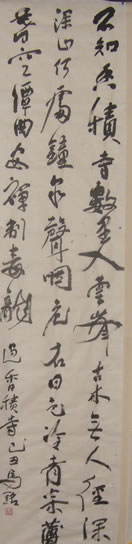 不知香積寺數里入雲峯古木無人徑深
深山何處鐘泉聲咽危石日色冷青松薄
暮空潭曲安禪制毒龍
過香積寺己丑馬